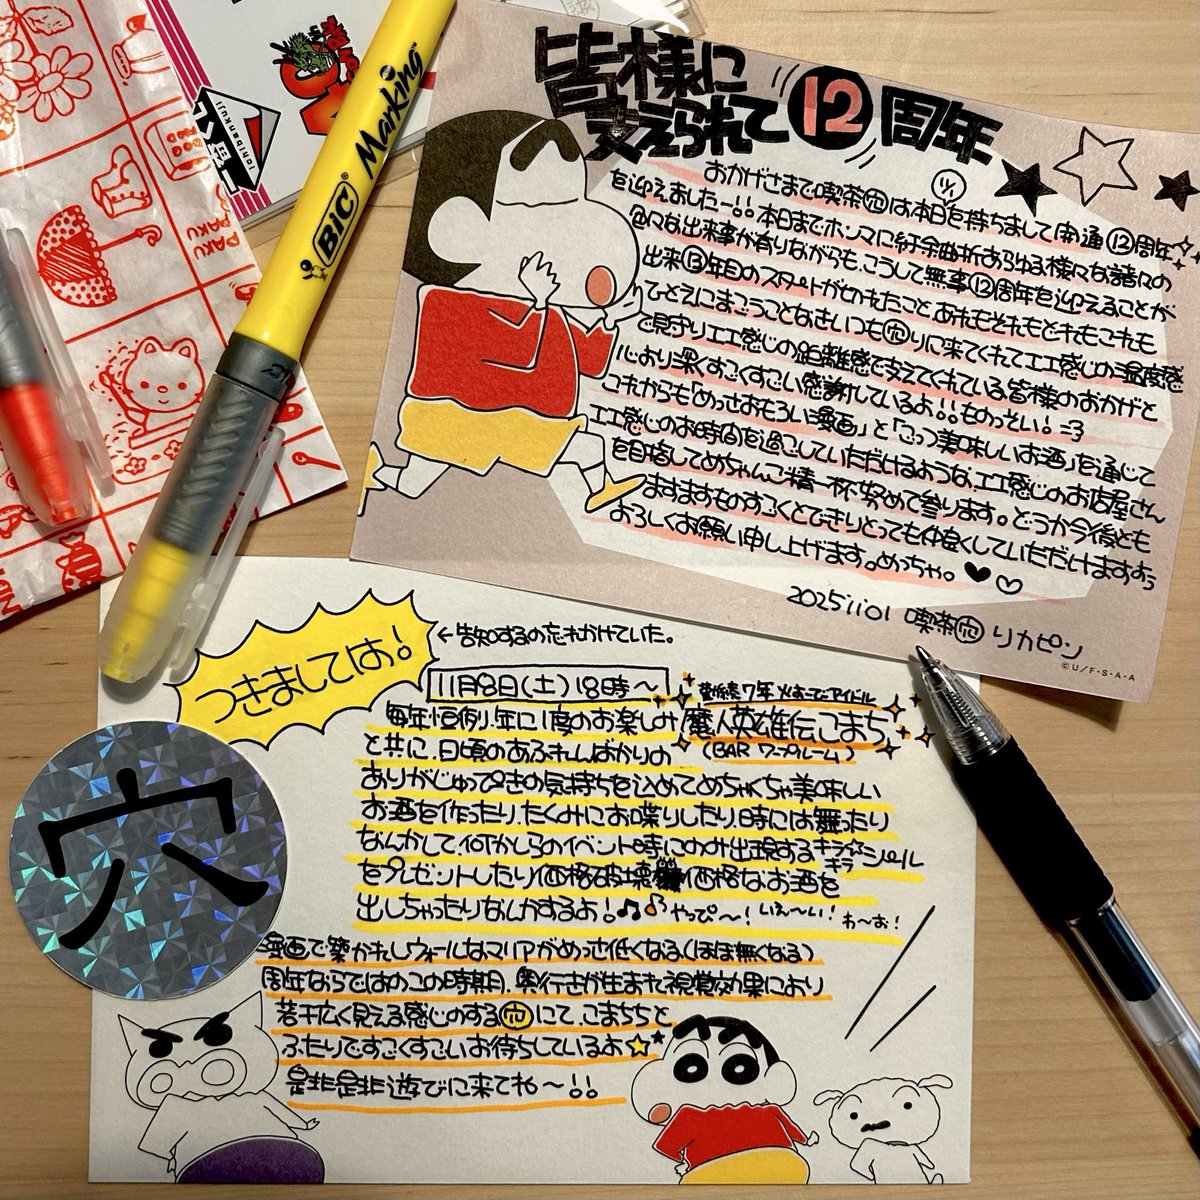 皆様に
支えられて⑫周年
おかげさまで喫茶㊄は本日11/1を持ちまして開通⑫周年
を迎えましたー!!本日までホンマに紆余曲折あらゆる様々な諸々の
色々な出来事が有りながらも、こうして無事⑫周年を迎えることが
出来⑬年目のスタートがきれたこと、あれもそれもどれもこれも
ひとえにまごうことなきいつも穴りに来てくれてエエ感じの温度感
で見守りエエ感じの距離感で支えてくれている皆様のおかげと
心より深くすごくすごい感謝しているよ!!ものっそい!=3
これからも「めっさおもろい漫画」と「ごっつ美味しいお酒」を通じて
エエ感じのお時間を過ごしていただけるような、エエ感じのお店屋さん
を目指してめちゃんこ精一杯努めて参ります。どうか今後とも
ますますものすごくとびきりとっても仲良くしていただけますよう
よろしくお願い申し上げます。めっちゃ。
20251101 喫茶穴 リカピン
©U/F・S・A・A
つきましては!
←告知するの忘れかけていた。
11月8日(土)18時〜
毎年恒例、年に1度のお楽しみ
魔人英雄伝こまち
(BAR ワープルーム)
と共に、日頃のあふれんばかりの
ありがじゅっぴきの気持ちを込めてめちゃくちゃ美味しい
お酒を作ったり、たくみにお喋りしたり、時には舞ったり
なんかして、何かしらのイベント時にのみ出現するキラ☆キラシール
をプレゼントしたり、価格破壊価格なお酒を
出しちゃったりなんかするよ!♫♪やっぴ〜! いえ〜い! わ〜お!
漫画で築かれしウォールなマリアがめっさ低くなる(ほぼ無くなる)
周年ならではのこの時期、奥行きが生まれ視覚効果により
若干広く見える感じのする穴にて、こまちちと
ふたりですごくすごいお待ちしているよ☆★
是非是非遊びに来てね〜!!
穴
BIC Marking
ichibankuji
PAKU
PAKU